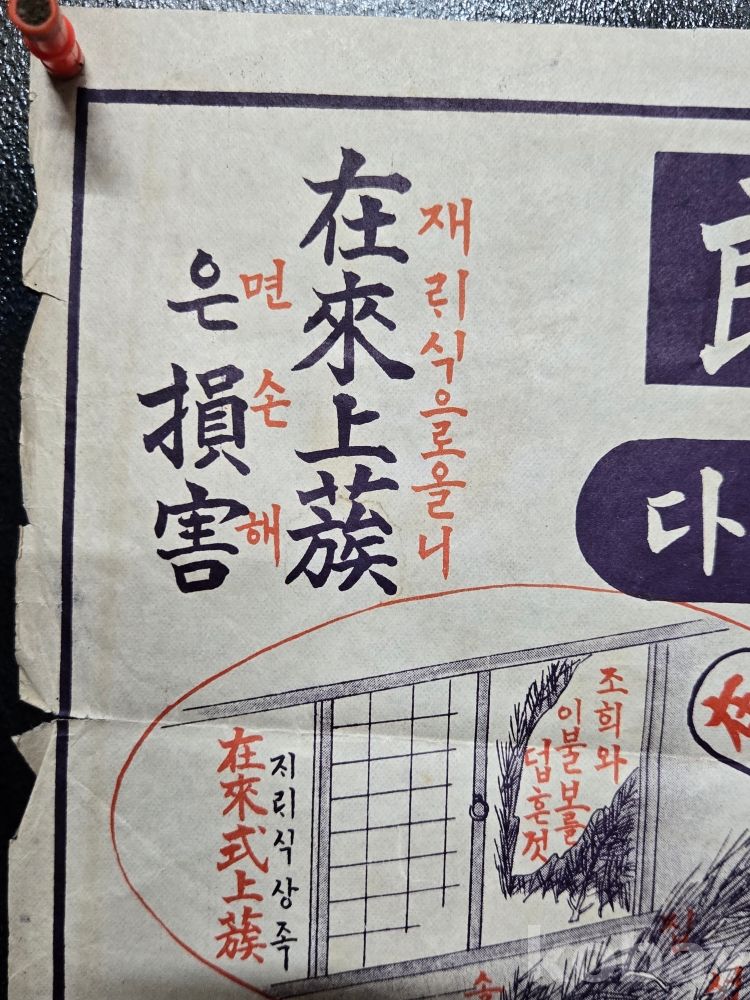 다
재ᄅᆡ식으로올니
在來上蔟
면손해
은損害
조희와
이불보를
덥흔것
ᄌᆡᄅᆡ식상족
在來式上蔟